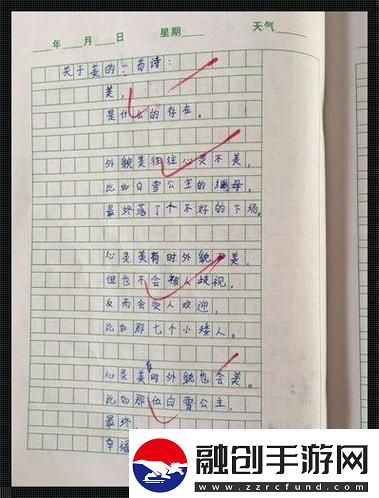 年 月 日 星期 天气
关于美的一首诗:
美,
是什么的存在。
外貌美往往心灵不美,
比如白雪公主的继母,
最终落了个不好的下场。
心灵美有时外貌不美,
但也不会被人歧视,
反而会受人欢迎,
比如那七个小矮人。
心灵美有时外貌也会美。
比如那位白雪公主,
最终
幸福
融创手游网
www.zzrcfund.com